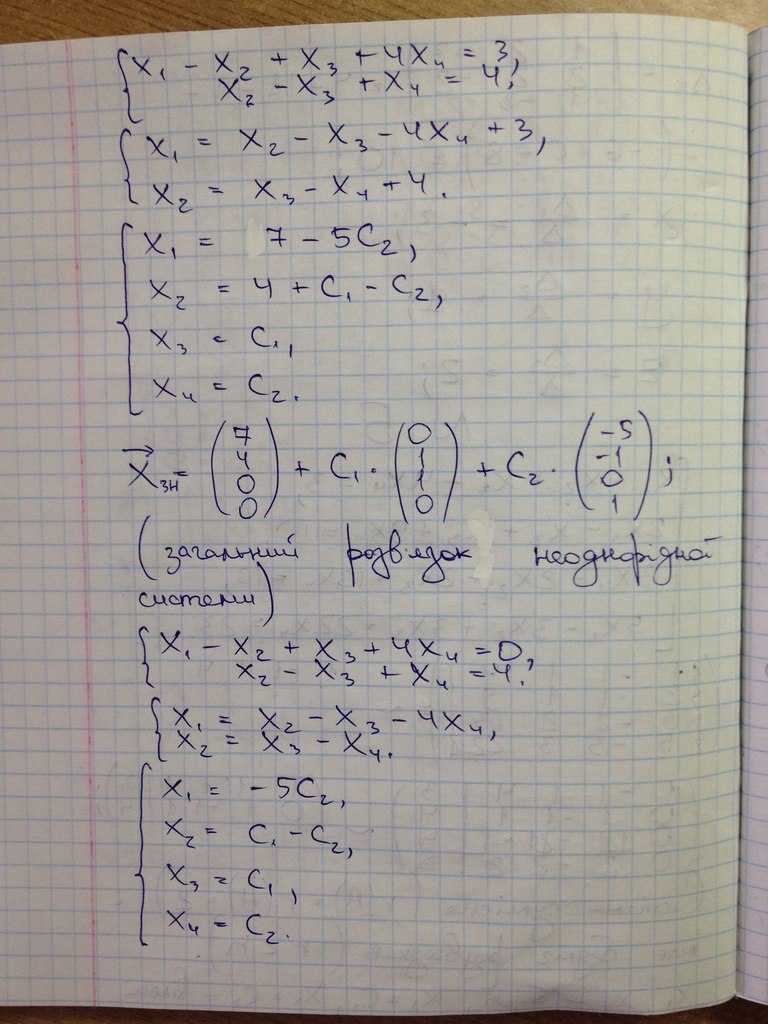 x₁ - x₂ + x₃ + 4x₄ = 3,
x₂ - x₃ + x₄ = 4;
x₁ = x₂ - x₃ - 4x₄ + 3,
x₂ = x₃ - x₄ + 4.
x₁ = 7 - 5C₂,
x₂ = 4 + C₁ - C₂,
x₃ = C₁,
x₄ = C₂.
X⃗зн = (7 4 0 0) + C₁ · (0 1 1 0) + C₂ · (-5 -1 0 1);
(загальний розв'язок неоднорідної
системи)
x₁ - x₂ + x₃ + 4x₄ = 0,
x₂ - x₃ + x₄ = 4.
x₁ = x₂ - x₃ - 4x₄,
x₂ = x₃ - x₄.
x₁ = -5C₂,
x₂ = C₁ - C₂,
x₃ = C₁,
x₄ = C₂.